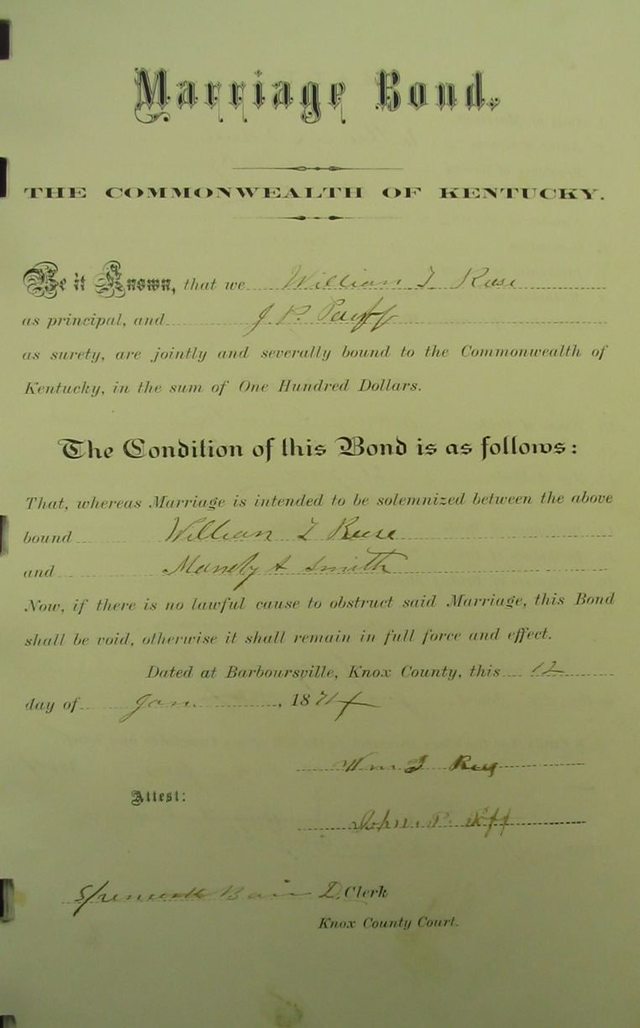 Marriage Bond.
THE COMMONWEALTH OF KENTUCKY.
Be it Known, that we William T Reese
as principal, and J. P.
as surety, are jointly and severally bound to the Commonwealth of
Kentucky, in the sum of One Hundred Dollars.
The Condition of this Bond is as follows:
That, whereas Marriage is intended to be solemnized between the above
bound William T Reese
and Mandy A Smith
Now, if there is no lawful cause to obstruct said Marriage, this Bond
shall be void, otherwise it shall remain in full force and effect.
Dated at Barboursville, Knox County, this 12
day of Jan. , 1874
Wm T
Attest:
John P.
D. Clerk
Knox County Court.